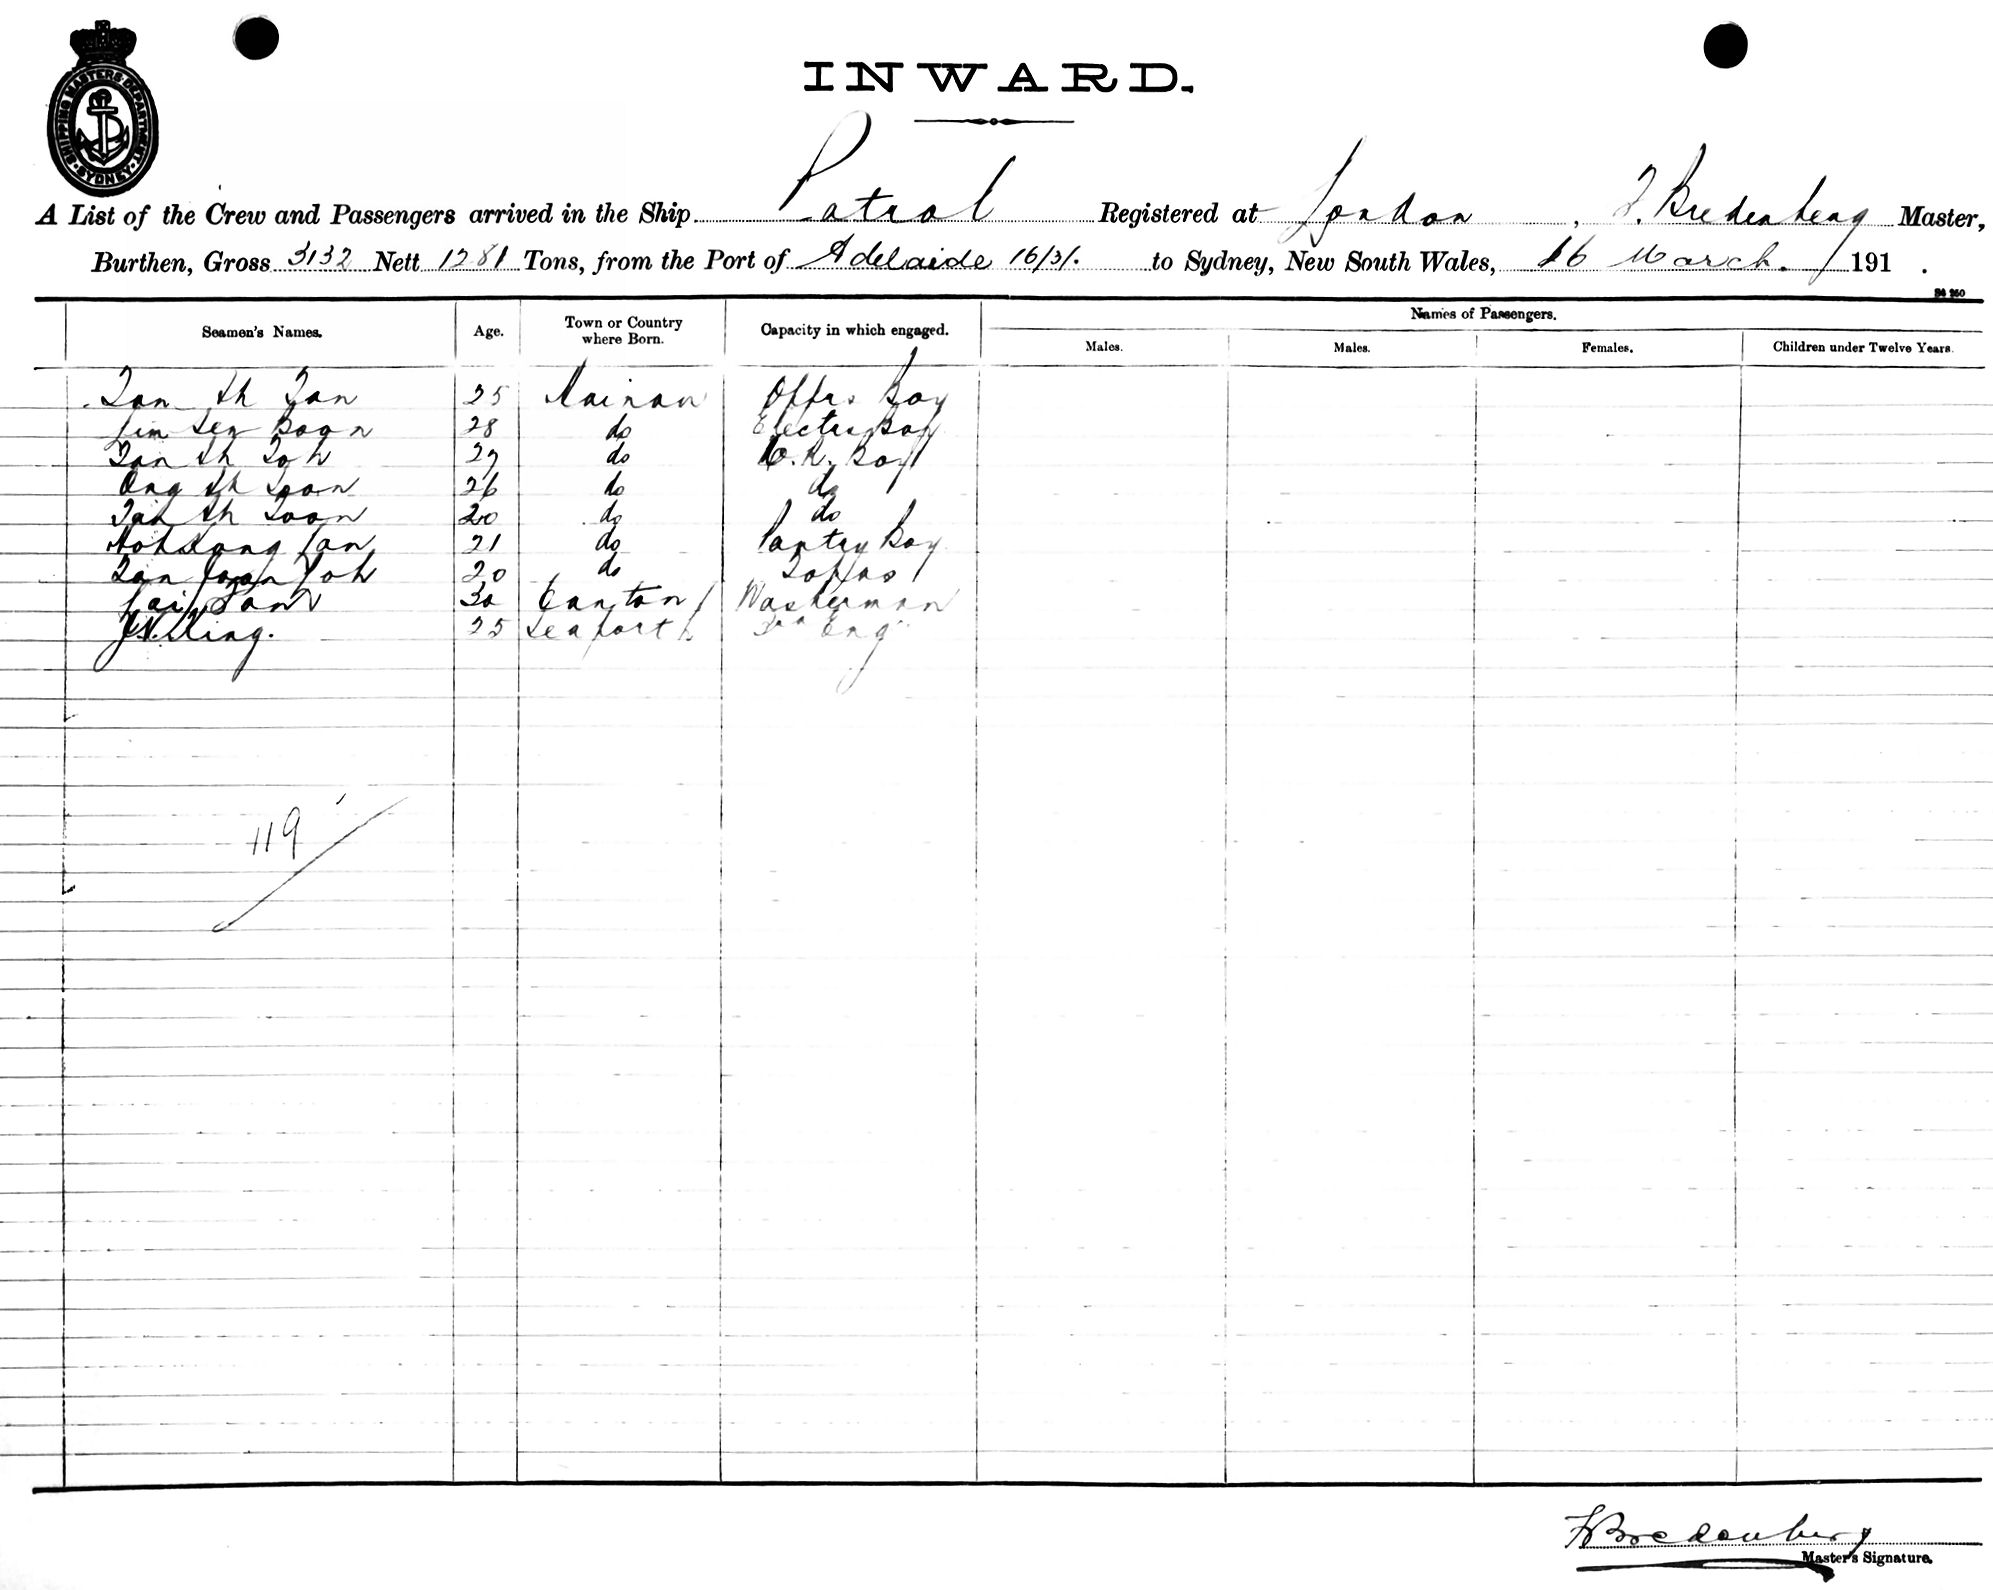 SHIPPING MASTERS DEPARTMENT
SYDNEY
INWARD.
A List of the Crew and Passengers arrived in the Ship Patrol Registered at London, F. Bredenberg Master,
Burthen, Gross 3132 Nett 1281 Tons, from the Port of Adelaide to Sydney, New South Wales, 16 March. 191 .
Seamen's Names. Age. Town or Country where Born. Capacity in which engaged. Names of Passengers.
Males. Males. Females. Children under Twelve Years.
Tan Ah Tan 25 Hainan Offrs Boy
Lim Sen Boon 28 do Electrs Boy
Tan Ah Toh 27 do E.R. Boy
Ong Ah Toan 26 do do
Tan Ah Toon 20 do do
21 do Pantry Boy
Tan 20 do Topas
30 Canton Washerman
King. 25 Seaforth Eng
119
F Bredenberg
Master's Signature.